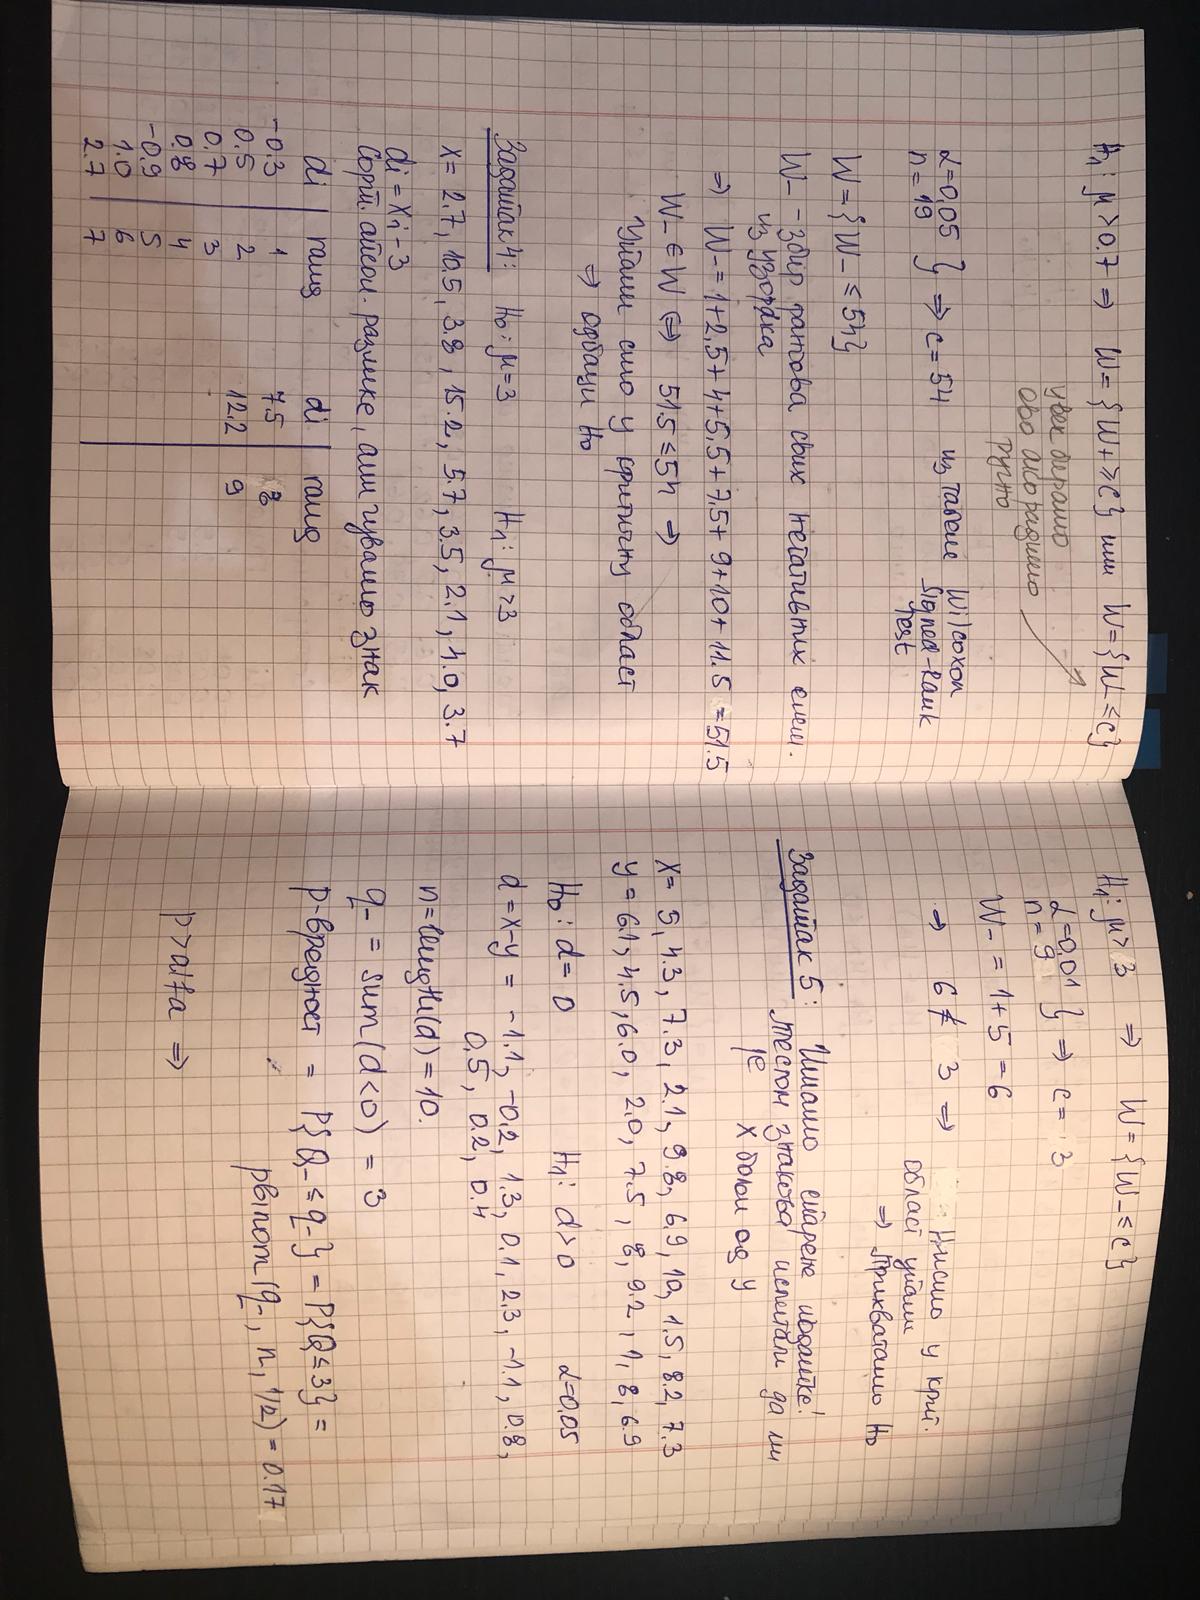 H₁: μ > 0.7 ⇒ W = {W+ ≥ c} или W = {W- ≤ c}
увек бирамо
ово ако радимо
ручно
α=0,05
n = 19 } ⇒ c = 54 из табеле Wilcoxon
Signed-Rank
Test
W = {W- ≤ 54}
W- - збир рангова свих негативних елем.
из узорка
⇒ W- = 1+2,5+4+5,5+7,5+9+10+11.5 = 51.5
W- ∈ W ⇔ 51.5 ≤ 54 ⇒
Упали смо у критичну област
⇒ одбаци H₀
Задатак 4: H₀: μ=3 H₁: μ>3
x = 2.7, 10.5, 3.8, 15.2, 5.7, 3.5, 2.1, 4.0, 3.7
di = xi - 3
Сорт. апсол. разлике, али чувамо знак
di | ранг di | ранг
-0.3 | 1 7.5 | 8
0.5 | 2 12.2 | 9
0.7 | 3
0.8 | 4
-0.9 | 5
1.0 | 6
2.7 | 7
H₁: μ > 3 ⇒ W = {W- ≤ c}
α=0.01
n = 9 } ⇒ c = 3
W- = 1+5 = 6
⇒ 6 ≰ 3 ⇒ Нисмо у крит.
област упали
⇒ Прихватамо H₀
Задатак 5: Имамо спарене податке!
Тестом знакова испитати да ли
је X бољи од Y
x = 5, 4.3, 7.3, 2.1, 9.8, 6.9, 10, 1.5, 8.2, 7.3
y = 6.1, 4.5, 6.0, 2.0, 7.5, 8, 9.2, 1, 8, 6.9
H₀: d = 0 H₁: d > 0 α=0.05
d = x-y = -1.1, -0.2, 1.3, 0.1, 2.3, -1.1, 0.8,
0.5, 0.2, 0.4
n = length(d) = 10.
q- = sum(d<0) = 3
p-вредност = P{Q- ≤ q-} = P{Q ≤ 3} =
pbinom(q-, n, 1/2) = 0.17
p > alfa ⇒